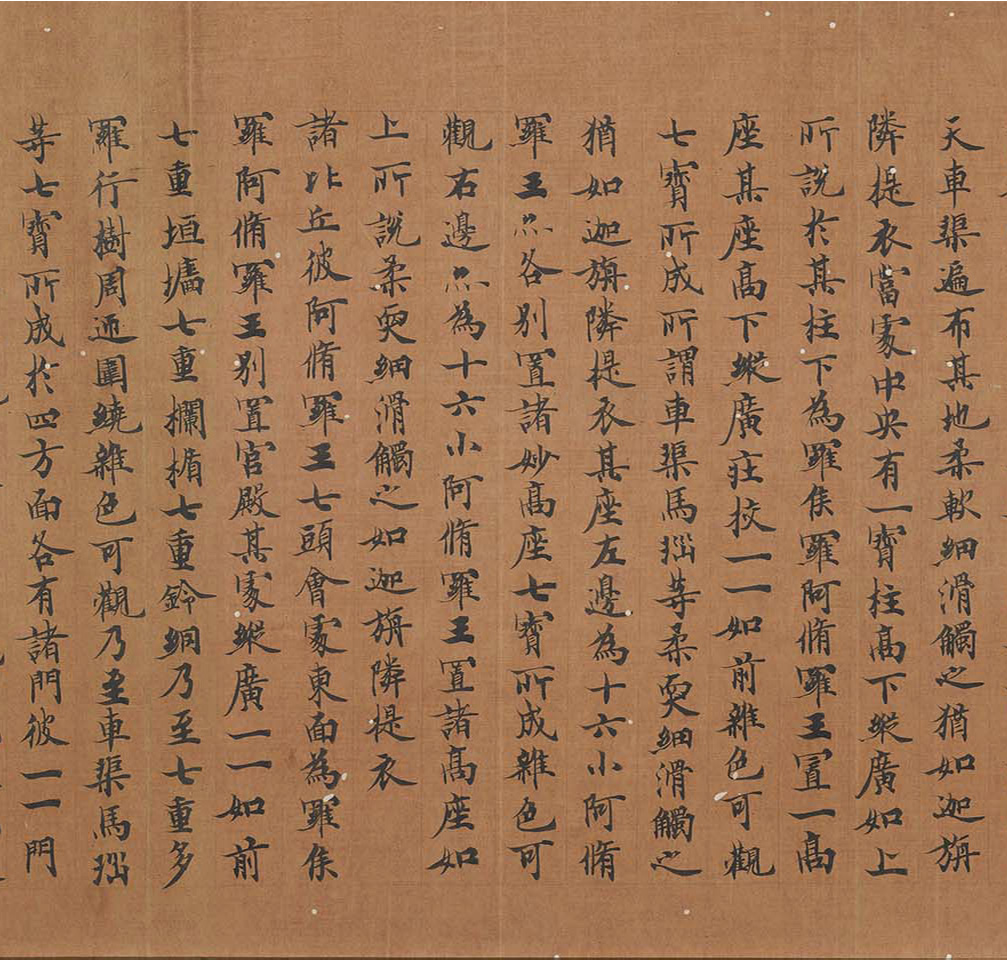 天車渠遍布其地柔軟細滑觸之猶如迦旃
隣提衣當處中央有一寶柱高下縱廣如上
所說於其柱下為羅睺羅阿脩羅王置一高
座其座高下縱廣莊挍一一如前雜色可觀
七寶所成所謂車渠馬瑙等柔耎細滑觸之
猶如迦旃隣提衣其座左邊為十六小阿脩
羅王亦各別置諸妙高座七寶所成雜色可
觀右邊亦為十六小阿脩羅王置諸高座如
上所說柔耎細滑觸之如迦旃隣提衣
諸比丘彼阿脩羅王七頭會處東面為羅睺
羅阿脩羅王別置宮殿其處縱廣一一如前
七重垣墻七重欄楯七重鈴網乃至七重多
羅行樹周迊圍繞雜色可觀乃至車渠馬瑙
等七寶所成於四方面各有諸門彼一一門